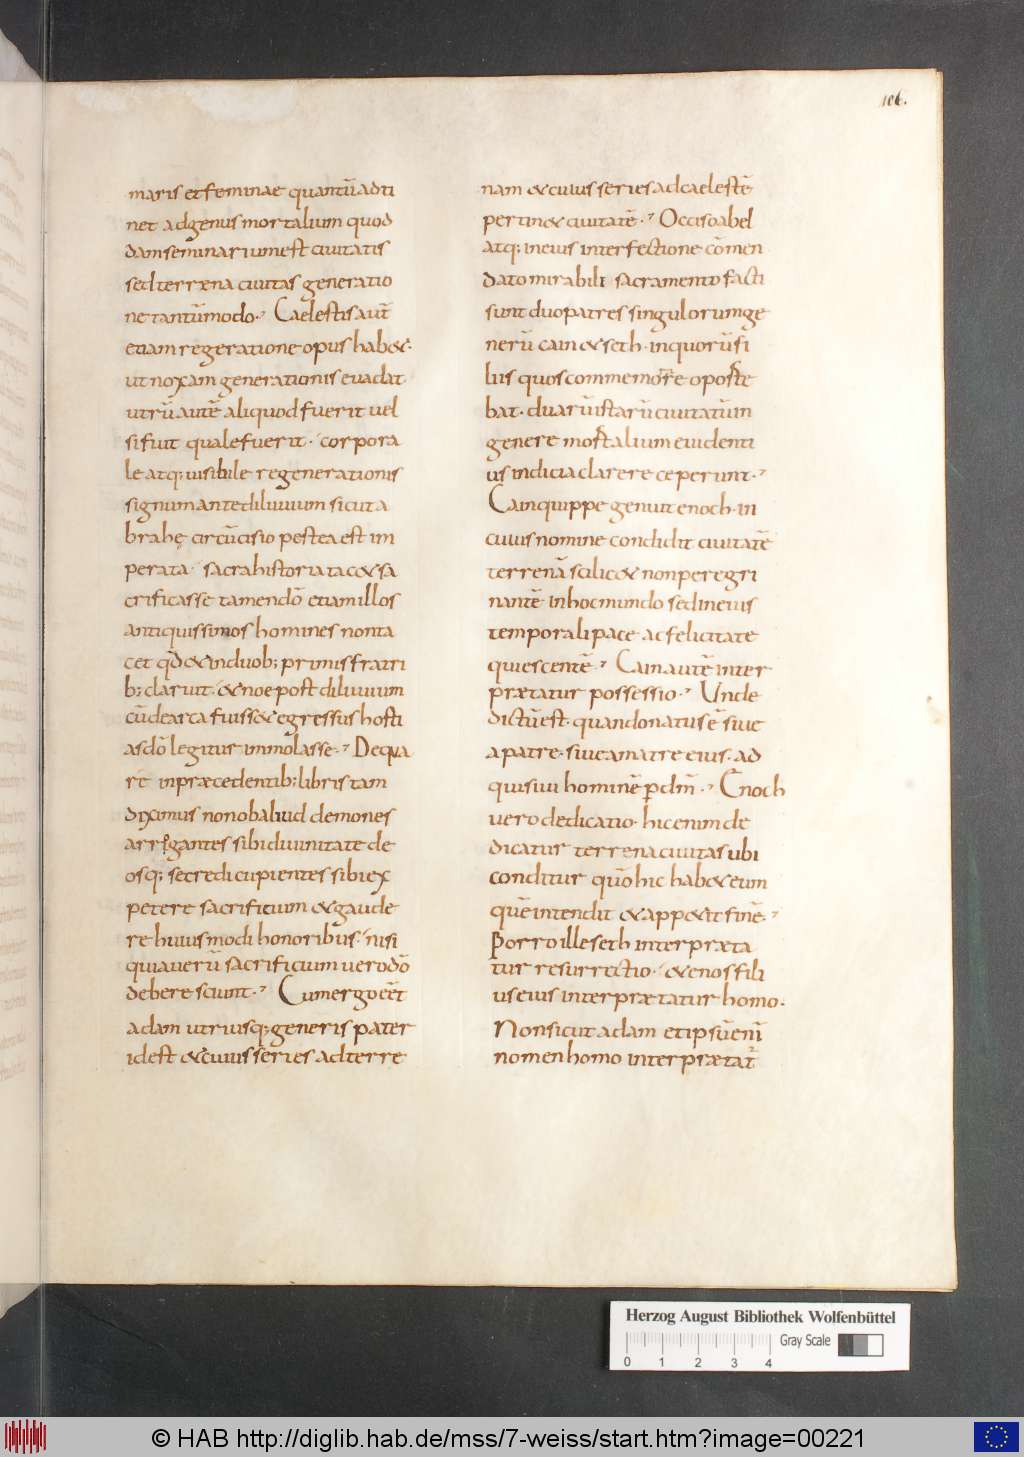 106.
maris et feminae quantū adti
net ad genus mortalium quod
dam seminarium est ciuitatis
sed terrena ciuitas generatio
ne tantūmodo. Caelestis aut̄
etiam regeratione opus hab&.
ut noxam generationis euadat.
utrū autē aliquod fuerit uel
si fuit quale fuerit. corpora
le atq; uisibile regenerationis
signum ante diluuium sicut a
brahę circūcisio postea est im
perata. sacra historia tac& sa
crificasse tamen dō etiam illos
antiquissimos homines non ta
cet qđ & in duob; primis fratri
b; claruit. & noe post diluuium
cū de arca fuiss& egressus hosti
as dō legitur immolasse. De qua
re in præcedentib; libris iam
diximus non ob aliud demones
arrogantes sibi diuinitate de
osq; se credi cupientes sibi ex
petere sacrificium & gaude
re huius modi honoribus. nisi
quia uerū sacrificium uero dō
debere sciunt. Cum ergo eēt
adam utriusq; generis pater
id est & cuius series ad terre
nam & cuius series ad caelestē
pertin& ciuitatē. Occiso abel
atq; in eius interfectione cōmen
dato mirabili sacramento facti
sunt duo patres singulorum ge
nerū cain & seth. in quorū fi
liis quos commemorare oporte
bat. duarū istarū ciuitatū in
genere mortalium euidenti
us indicia clarere ceperunt.
Cain quippe genuit enoch. in
cuius nomine condidit ciuitatē
terrenā scilic& non peregri
nantē in hoc mundo sed in eius
temporali pace ac felicitate
quiescentē. Cain autē inter
prætatur possessio. Unde
dictū est. quando natus ē siue
a patre. siue a matre eius. ad
quisiui hominē ꝑ dm̄. Enoch
uero dedicatio. hic enim de
dicatur terrena ciuitas ubi
conditur quō hic hab& eum
quē intendit & app&it finē.
Porro ille seth interpræta
tur resurrectio. & enos fili
us eius interprætatur homo.
Non sicut adam et ipsū eni
nomen homo interprætat̄
Herzog August Bibliothek Wolfenbüttel
0 1 2 3 4 Gray Scale
© HAB http://diglib.hab.de/mss/7-weiss/start.htm?image=00221